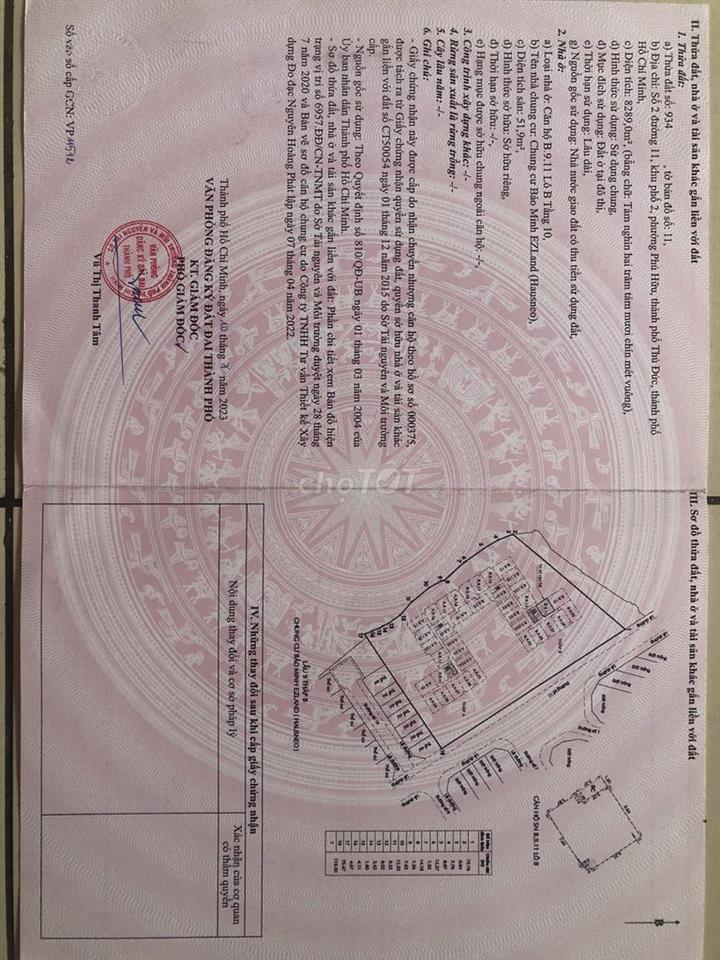 II. Thửa đất, nhà ở và tài sản khác gắn liền với đất
1. Thửa đất:
a) Thửa đất số: 934 , tờ bản đồ số: 11,
b) Địa chỉ: Số 2 đường 11, khu phố 2, phường Phú Hữu, thành phố Thủ Đức, thành phố
Hồ Chí Minh,
c) Diện tích: 8289,0m², (bằng chữ: Tám nghìn hai trăm tám mươi chín mét vuông),
d) Hình thức sử dụng: Sử dụng chung,
đ) Mục đích sử dụng: Đất ở tại đô thị,
e) Thời hạn sử dụng: Lâu dài,
g) Nguồn gốc sử dụng: Nhà nước giao đất có thu tiền sử dụng đất,
2. Nhà ở:
a) Loại nhà ở: Căn hộ B.9.11 Lô B Tầng 10,
b) Tên nhà chung cư: Chung cư Bảo Minh EZLand (Hausneo),
c) Diện tích sàn: 51,9m²,
d) Hình thức sở hữu: Sở hữu riêng,
đ) Thời hạn sở hữu: -/-,
e) Hạng mục được sở hữu chung ngoài căn hộ: -/-,
3. Công trình xây dựng khác: -/-
4. Rừng sản xuất là rừng trồng: -/-
5. Cây lâu năm: -/-
6. Ghi chú:
- Giấy chứng nhận này được cấp do nhận chuyển nhượng căn hộ theo hồ sơ số 000375,
được tách ra từ Giấy chứng nhận quyền sử dụng đất, quyền sở hữu nhà ở và tài sản khác
gắn liền với đất số CT50054 ngày 01 tháng 12 năm 2015 do Sở Tài nguyên và Môi trường
cấp.
- Nguồn gốc sử dụng: Theo Quyết định số 810/QĐ-UB ngày 01 tháng 03 năm 2004 của
Ủy ban nhân dân Thành phố Hồ Chí Minh.
- Sơ đồ thửa đất, nhà ở và tài sản khác gắn liền với đất: Phần chi tiết xem Bản đồ hiện
trạng vị trí số 6957.ĐĐ/CN-TNMT do Sở Tài nguyên và Môi trường duyệt ngày 28 tháng
7 năm 2020 và Bản vẽ sơ đồ căn hộ chung cư do Công ty TNHH Tư vấn Thiết kế Xây
dựng Đo đạc Nguyên Hoàng Phát lập ngày 07 tháng 04 năm 2022.
Thành phố Hồ Chí Minh, ngày tháng năm 2023
VĂN PHÒNG ĐĂNG KÝ ĐẤT ĐAI THÀNH PHỐ
KT. GIÁM ĐỐC
PHÓ GIÁM ĐỐC
VĂN PHÒNG
ĐĂNG KÝ ĐẤT ĐAI
THÀNH PHỐ
Vũ Thị Thanh Tâm
Số vào sổ cấp GCN: VP
choTOT
III. Sơ đồ thửa đất, nhà ở và tài sản khác gắn liền với đất
CĂN HỘ SN B.9.11 LÔ B
LẦU 9 THÁP B
CHUNG CƯ BẢO MINH EZLAND ( HAUSNEO )
IV. Những thay đổi sau khi cấp giấy chứng nhận
Nội dung thay đổi và cơ sở pháp lý
Xác nhận của cơ quan
có thẩm quyền